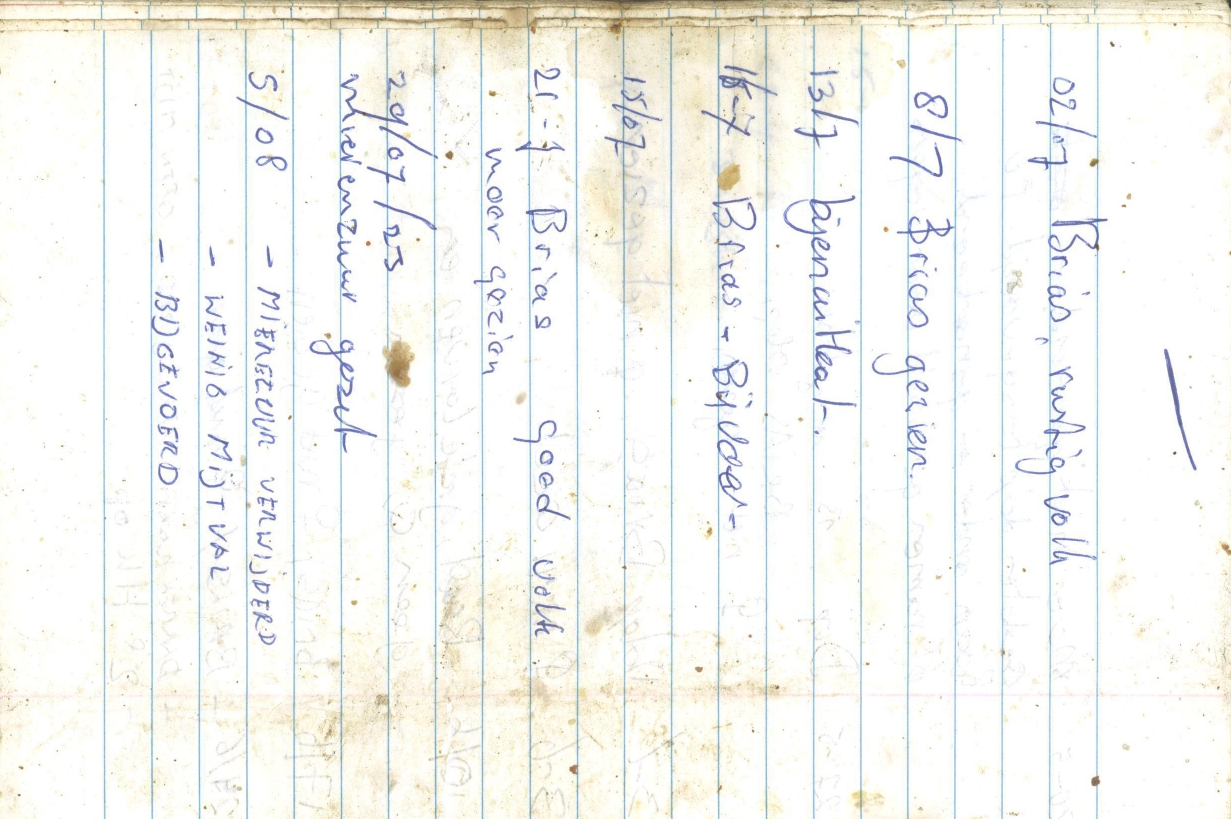 02/07 Brias, rustig volk
8/7 Brias gezien.
13/7 bijenuitlaat.
16-7 Brias - Bijvoer-
15/07
21-7 Brias Goed volk
moer gezien
29/07/23
mierenzuur gezet
5/08 - MIEREZUUR VERWIJDERD
- WEINIG MIJTVAL
- BIJGEVOERD